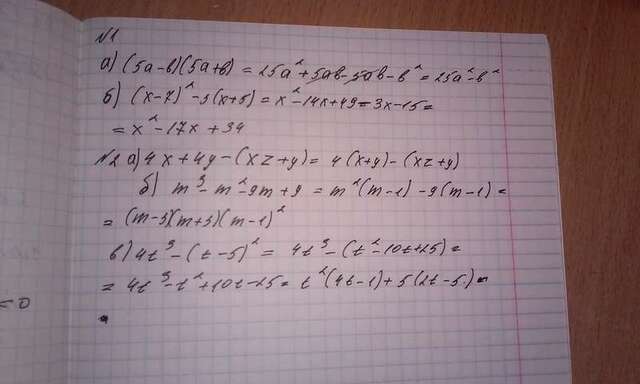 №1
а) (5a-b)(5a+b) = 25a²+5ab-5ab-b² = 25a²-b²
б) (x-7)²-3(x+5) = x²-14x+49-3x-15=
= x²-17x+34
№2 а) 4x+4y-(xz+y)= 4(x+y)-(xz+y)
б) m³-m²-9m+9 = m²(m-1)-9(m-1)=
= (m-3)(m+3)(m-1)²
в) 4t³-(t-5)² = 4t³-(t²-10t+25)=
= 4t³-t²+10t-25= t²(4t-1)+5(2t-5)-
=0